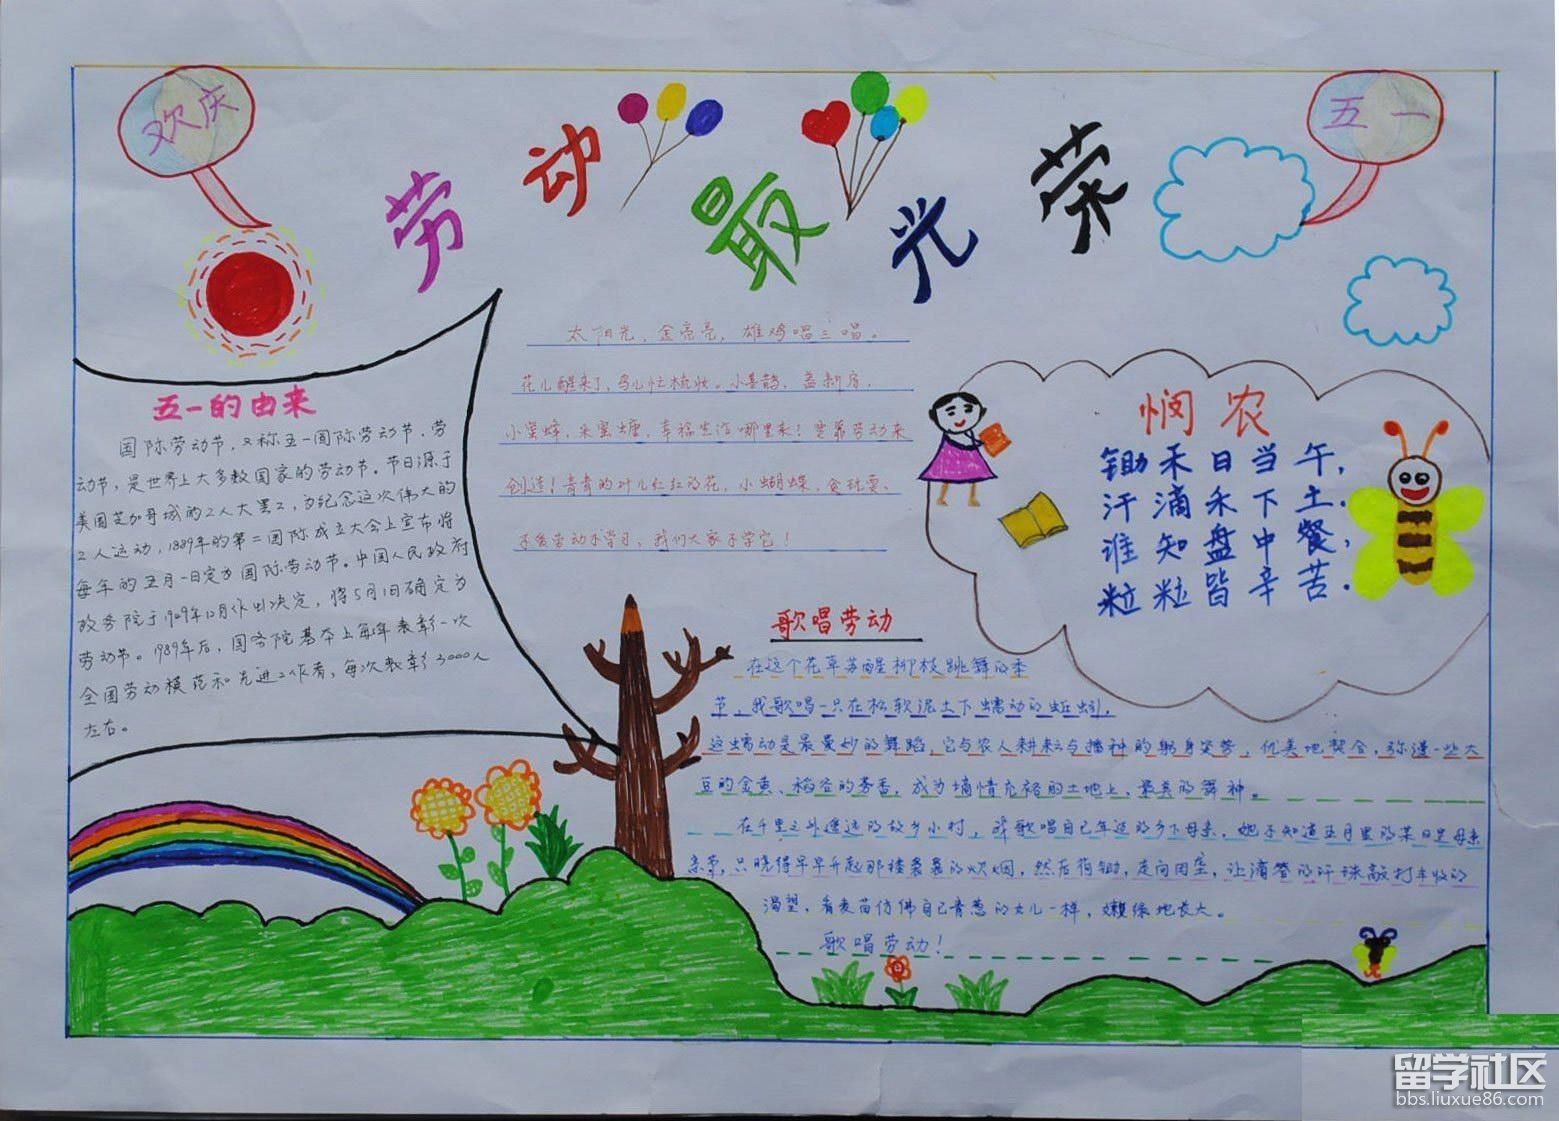 欢庆
劳动最光荣
五一
五一的由来
国际劳动节，又称五一国际劳动节，劳
动节，是世界上大多数国家的劳动节。节日源于
美国芝加哥城的工人大罢工，为纪念这次伟大的
工人运动，1889年的第二国际成立大会上宣布将
每年的五月一日定为国际劳动节。中国人民政府
政务院于1949年12月作出决定，将5月1日确定为
劳动节。1989年后，国务院基本上每5年表彰一次
全国劳动模范和先进工作者，每次表彰3000人
左右。
太阳光，金亮亮，雄鸡唱三唱。
花儿醒来了，鸟儿忙梳妆。小喜鹊，盖新房，
小蜜蜂，采蜜糖，幸福生活哪里来！要靠劳动来
创造！青青的叶儿红红的花，小蝴蝶，贪玩耍、
不爱劳动不学习，我们大家不学它！
悯农
锄禾日当午，
汗滴禾下土。
谁知盘中餐，
粒粒皆辛苦。
歌唱劳动
在这个花草苏醒柳枝跳舞的季
节，我歌唱一只在松软泥土下蠕动的蚯蚓，
这蠕动是最曼妙的舞蹈，它与农人耕耘与播种的躬身姿势，优美地契合，弥漫一些大
豆的金黄、稻谷的芳香，成为墒情充裕的土地上，最美的舞神。
在千里之外遥远的故乡小村，我歌唱自己年迈的乡下母亲，她不知道五月里的某日是母亲
亲节，只晓得早早升起那缕袅袅的炊烟，然后荷锄，走向田垄，让滴答的汗珠敲打丰收的
渴望，看麦苗仿佛自己青葱的女儿一样，嫩绿地长大。
歌唱劳动！
留学社区
bbs.liuxue86.com